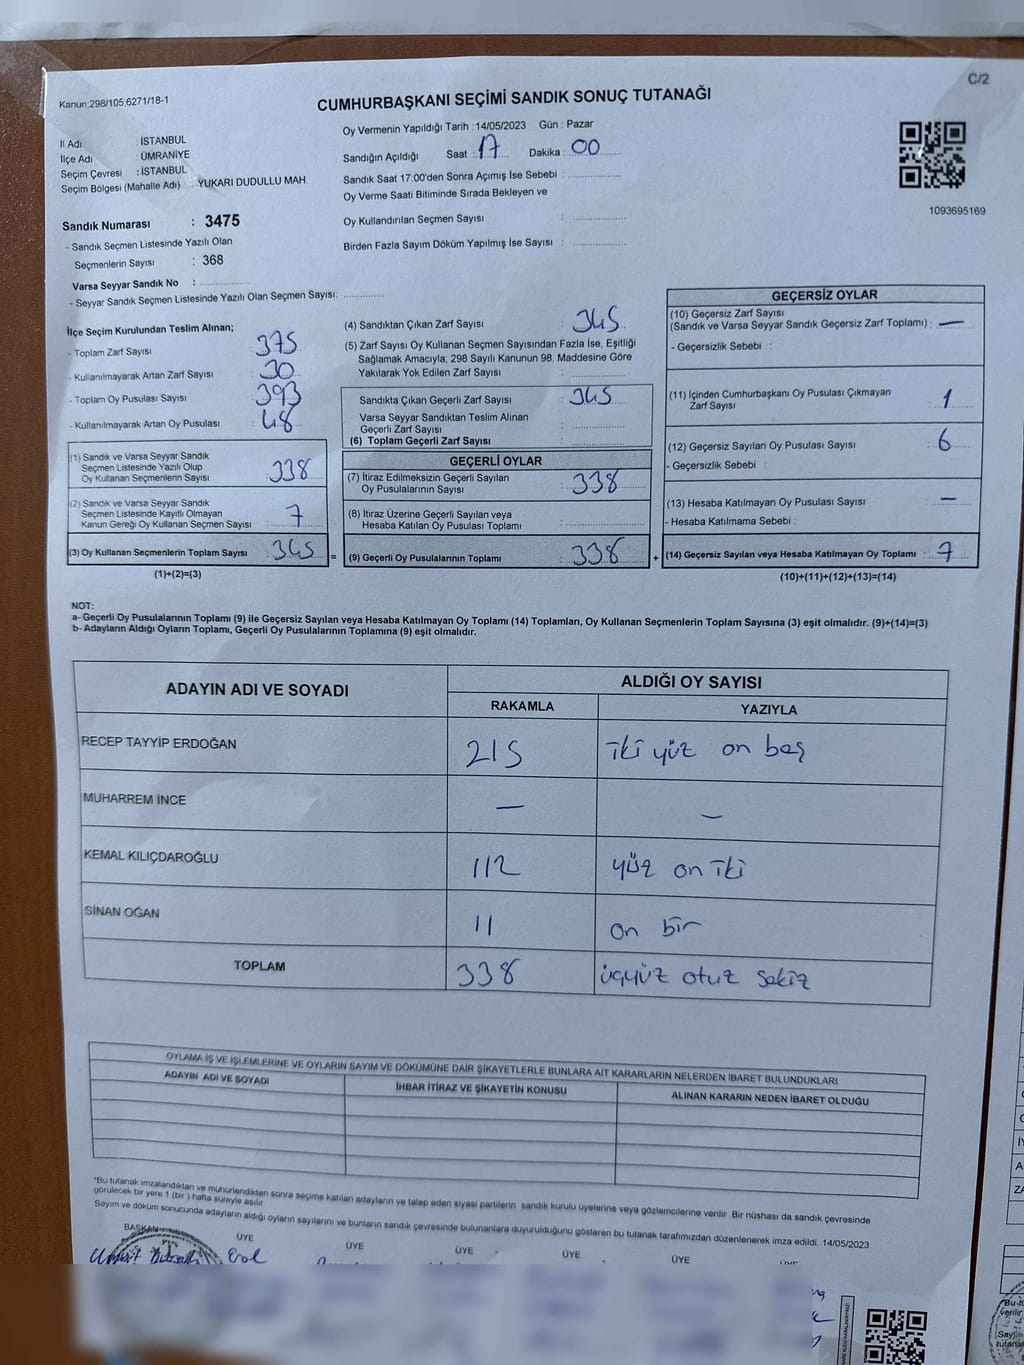 C/2
Kanun:298/105,6271/18-1
CUMHURBAŞKANI SEÇİMİ SANDIK SONUÇ TUTANAĞI
İl Adı : İSTANBUL
İlçe Adı : ÜMRANİYE
Seçim Çevresi : İSTANBUL
Seçim Bölgesi (Mahalle Adı) : YUKARI DUDULLU MAH.
Sandık Numarası : 3475
- Sandık Seçmen Listesinde Yazılı Olan
Seçmenlerin Sayısı : 368
Varsa Seyyar Sandık No :
- Seyyar Sandık Seçmen Listesinde Yazılı Olan Seçmen Sayısı:
Oy Vermenin Yapıldığı Tarih : 14/05/2023 Gün : Pazar
Sandığın Açıldığı Saat : 17 Dakika : 00
Sandık Saat 17:00'den Sonra Açımış İse Sebebi :
Oy Verme Saati Bitiminde Sırada Bekleyen ve
Oy Kullandırılan Seçmen Sayısı :
Birden Fazla Sayım Döküm Yapılmış İse Sayısı :
1093695169
İlçe Seçim Kurulundan Teslim Alınan;
- Toplam Zarf Sayısı : 375
- Kullanılmayarak Artan Zarf Sayısı : 30
- Toplam Oy Pusulası Sayısı : 393
- Kullanılmayarak Artan Oy Pusulası : 48
(1) Sandık ve Varsa Seyyar Sandık
Seçmen Listesinde Yazılı Olup
Oy Kullanan Seçmenlerin Sayısı : 338
(2) Sandık ve Varsa Seyyar Sandık
Seçmen Listesinde Kayıtlı Olmayan
Kanun Gereği Oy Kullanan Seçmen Sayısı : 7
(3) Oy Kullanan Seçmenlerin Toplam Sayısı : 345 =
(1)+(2)=(3)
(4) Sandıktan Çıkan Zarf Sayısı : 345
(5) Zarf Sayısı Oy Kullanan Seçmen Sayısından Fazla İse, Eşitliği
Sağlamak Amacıyla; 298 Sayılı Kanunun 98. Maddesine Göre
Yakılarak Yok Edilen Zarf Sayısı :
Sandıkta Çıkan Geçerli Zarf Sayısı : 345
Varsa Seyyar Sandıktan Teslim Alınan
Geçerli Zarf Sayısı :
(6) Toplam Geçerli Zarf Sayısı :
GEÇERLİ OYLAR
(7) İtiraz Edilmeksizin Geçerli Sayılan
Oy Pusulalarının Sayısı : 338
(8) İtiraz Üzerine Geçerli Sayılan veya
Hesaba Katılan Oy Pusulası Toplamı :
(9) Geçerli Oy Pusulalarının Toplamı : 338 +
GEÇERSİZ OYLAR
(10) Geçersiz Zarf Sayısı
(Sandık ve Varsa Seyyar Sandık Geçersiz Zarf Toplamı) : —
- Geçersizlik Sebebi :
(11) İçinden Cumhurbaşkanı Oy Pusulası Çıkmayan
Zarf Sayısı : 1
(12) Geçersiz Sayılan Oy Pusulası Sayısı : 6
- Geçersizlik Sebebi :
(13) Hesaba Katılmayan Oy Pusulası Sayısı : —
- Hesaba Katılmama Sebebi :
(14) Geçersiz Sayılan veya Hesaba Katılmayan Oy Toplamı : 7
(10)+(11)+(12)+(13)=(14)
NOT:
a- Geçerli Oy Pusulalarının Toplamı (9) ile Geçersiz Sayılan veya Hesaba Katılmayan Oy Toplamı (14) Toplamları, Oy Kullanan Seçmenlerin Toplam Sayısına (3) eşit olmalıdır. (9)+(14)=(3)
b- Adayların Aldığı Oyların Toplamı, Geçerli Oy Pusulalarının Toplamına (9) eşit olmalıdır.
ADAYIN ADI VE SOYADI
ALDIĞI OY SAYISI
RAKAMLA YAZIYLA
RECEP TAYYİP ERDOĞAN 215 iki yüz on beş
MUHARREM İNCE — —
KEMAL KILIÇDAROĞLU 112 yüz on iki
SİNAN OĞAN 11 on bir
TOPLAM 338 üçyüz otuz sekiz
OYLAMA İŞ VE İŞLEMLERİNE VE OYLARIN SAYIM VE DÖKÜMÜNE DAİR ŞİKAYETLERLE BUNLARA AİT KARARLARIN NELERDEN İBARET BULUNDUKLARI
ADAYIN ADI VE SOYADI İHBAR İTİRAZ VE ŞİKAYETİN KONUSU ALINAN KARARIN NEDEN İBARET OLDUĞU
*Bu tutanak imzalandıktan ve mühürlendikten sonra seçime katılan adayların ve talep eden siyasi partilerin sandık kurulu üyelerine veya gözlemcilerine verilir. Bir nüshası da sandık çevresinde
görülecek bir yere 1 (bir) hafta süreyle asılır
Sayım ve döküm sonucunda adayların aldığı oyların sayılarını ve bunların sandık çevresinde bulunanlara duyurulduğunu gösteren bu tutanak tarafımızdan düzenlenerek imza edildi. 14/05/2023
BAŞKAN ÜYE ÜYE ÜYE ÜYE ÜYE